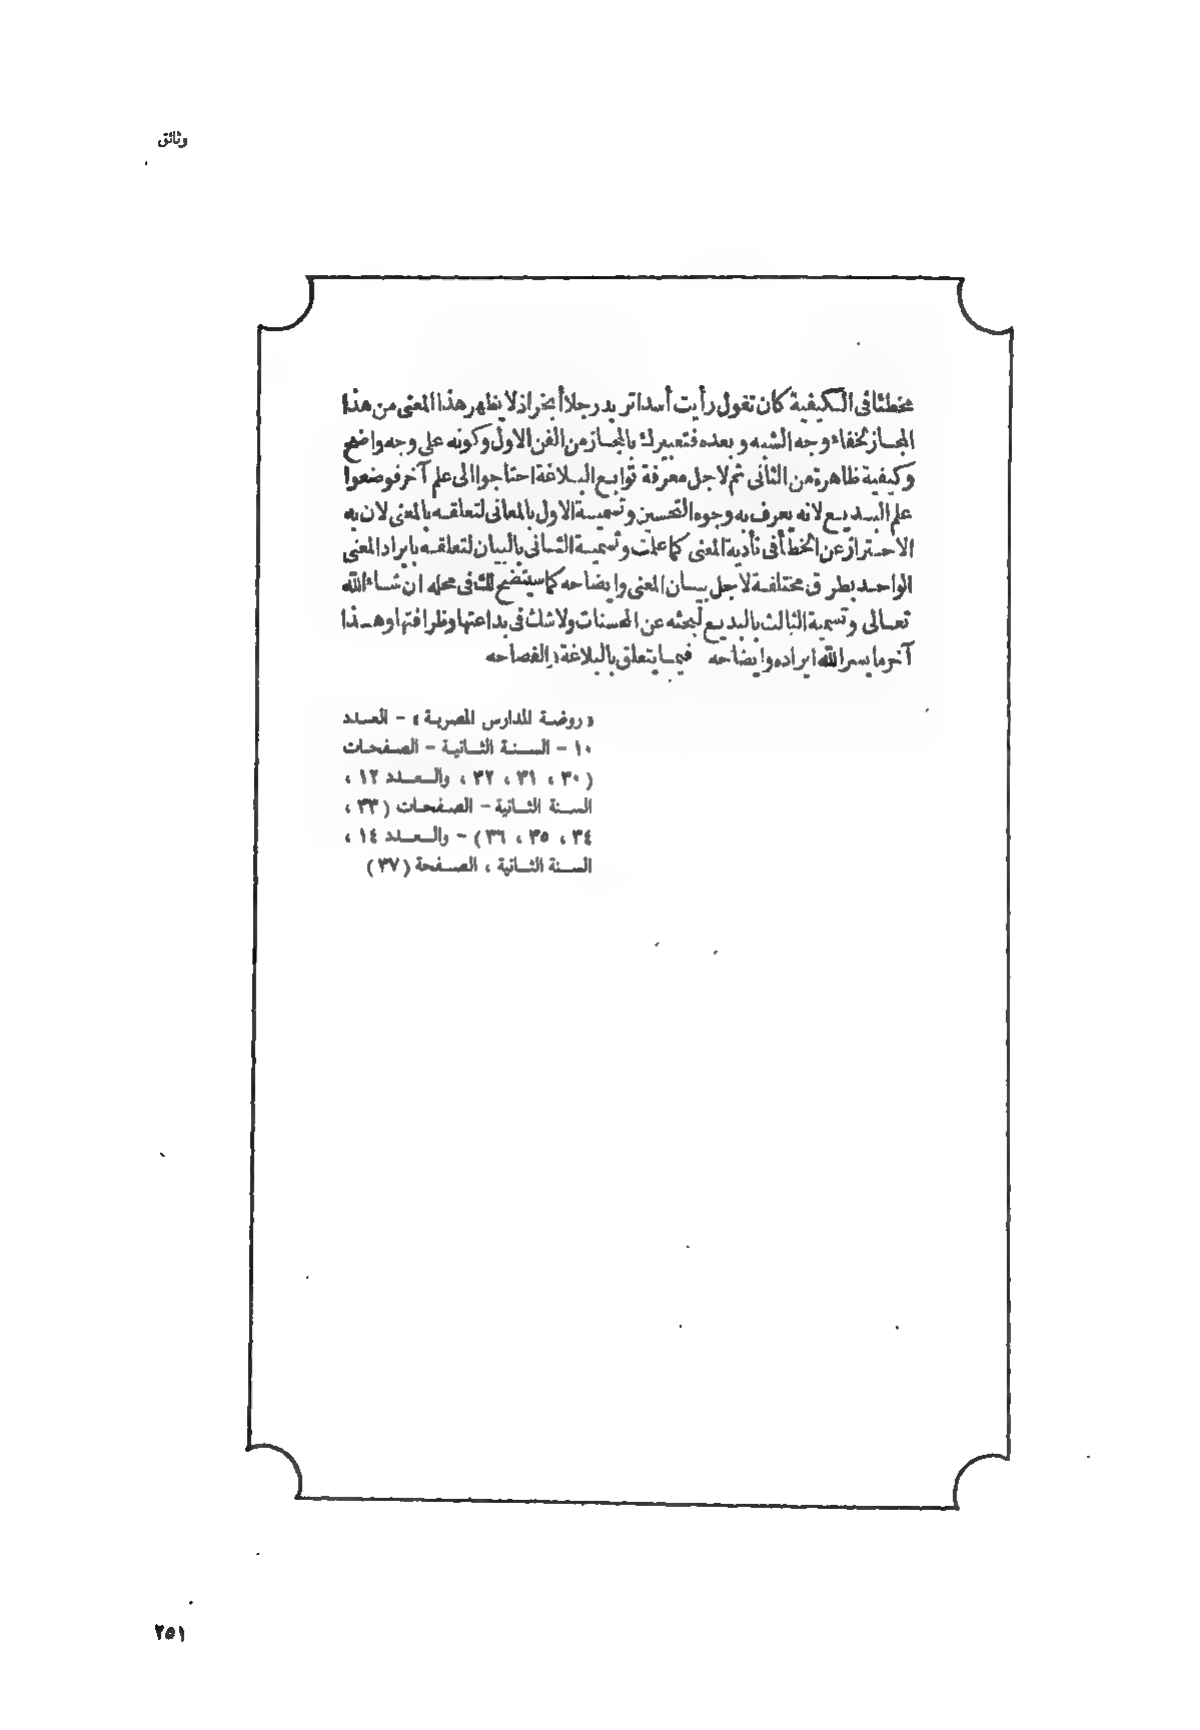 وثائق
مخطئا فى الكيفية كان تقول رأيت أسدا تريد رجلا أبخر اذ لا يظهر هذا المعنى من هذا
المجاز لخفاء وجه الشبه وبعده فتعبيرك بالمجاز من الفن الاول وكونه على وجه واضح
وكيفية ظاهرة من الثانى ثم لاجل معرفة توابع البلاغة احتاجوا الى علم آخر فوضعوا
علم البديع لانه يعرف به وجوه التحسين وتسمية الاول بالمعانى لتعلقه بالمعنى لان به
الاحتراز عن الخطأ فى تأدية المعنى كما علمت وتسمية الثانى بالبيان لتعلقه بايراد المعنى
الواحد بطرق مختلفة لاجل بيان المعنى وايضاحه كما سيتضح لك فى محله ان شاء الله
تعالى وتسمية الثالث بالبديع لبحثه عن المحسنات ولا شك فى بداعتها وظرافتها وهذا
آخر ما يسر الله ايراده وايضاحه فيما يتعلق بالبلاغة والفصاحه
« روضة المدارس المصرية » – العدد
١٠ – السنة الثانية – الصفحات
( ٣٠ ، ٣١ ، ٣٢ ، والعدد ١٢ ،
السنة الثانية – الصفحات ( ٣٣ ،
٣٤ ، ٣٥ ، ٣٦ ) – والعدد ١٤ ،
السنة الثانية ، الصفحة ( ٣٧ )
٢٥١